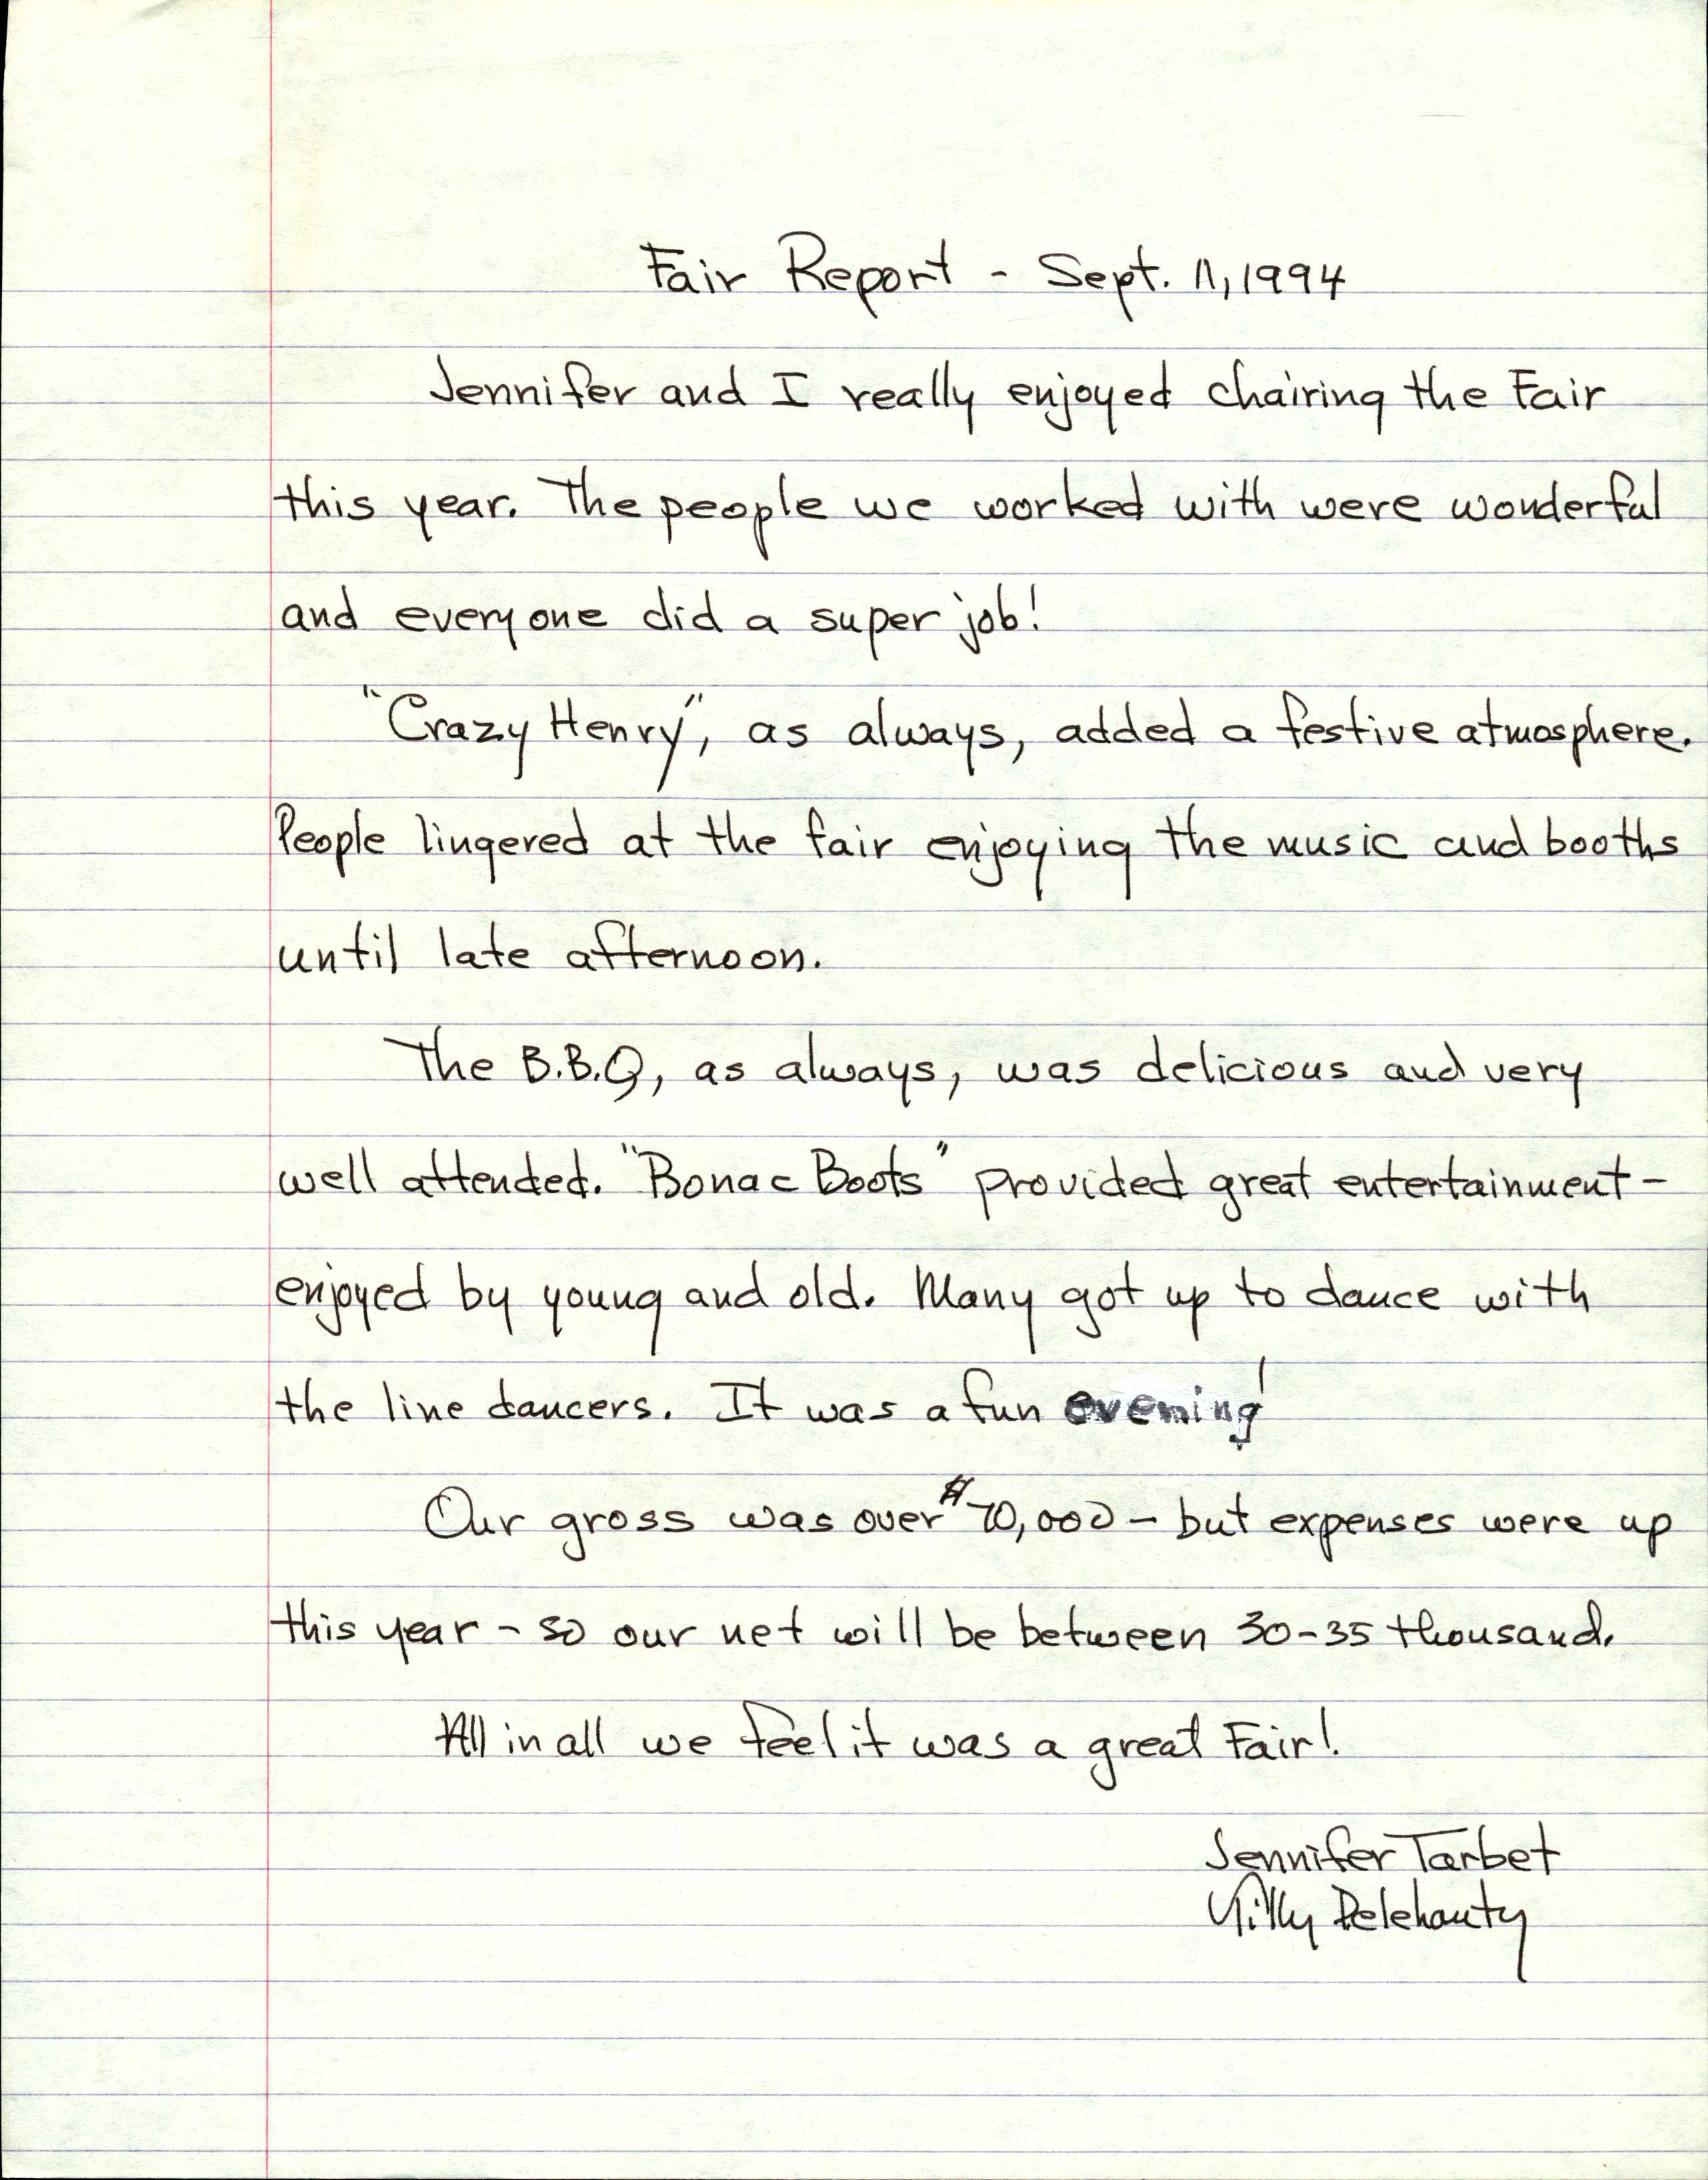 Fair Report - Sept. 11, 1994
Jennifer and I really enjoyed chairing the Fair
this year. The people we worked with were wonderful
and everyone did a super job!
"Crazy Henry", as always, added a festive atmosphere.
People lingered at the fair enjoying the music and booths
until late afternoon.
The B.B.Q, as always, was delicious and very
well attended. "Bonac Boots" provided great entertainment -
enjoyed by young and old. Many got up to dance with
the line dancers. It was a fun evening!
Our gross was over $70,000 - but expenses were up
this year - so our net will be between 30-35 thousand.
All in all we feel it was a great Fair!
Jennifer Tarbet
Delehanty